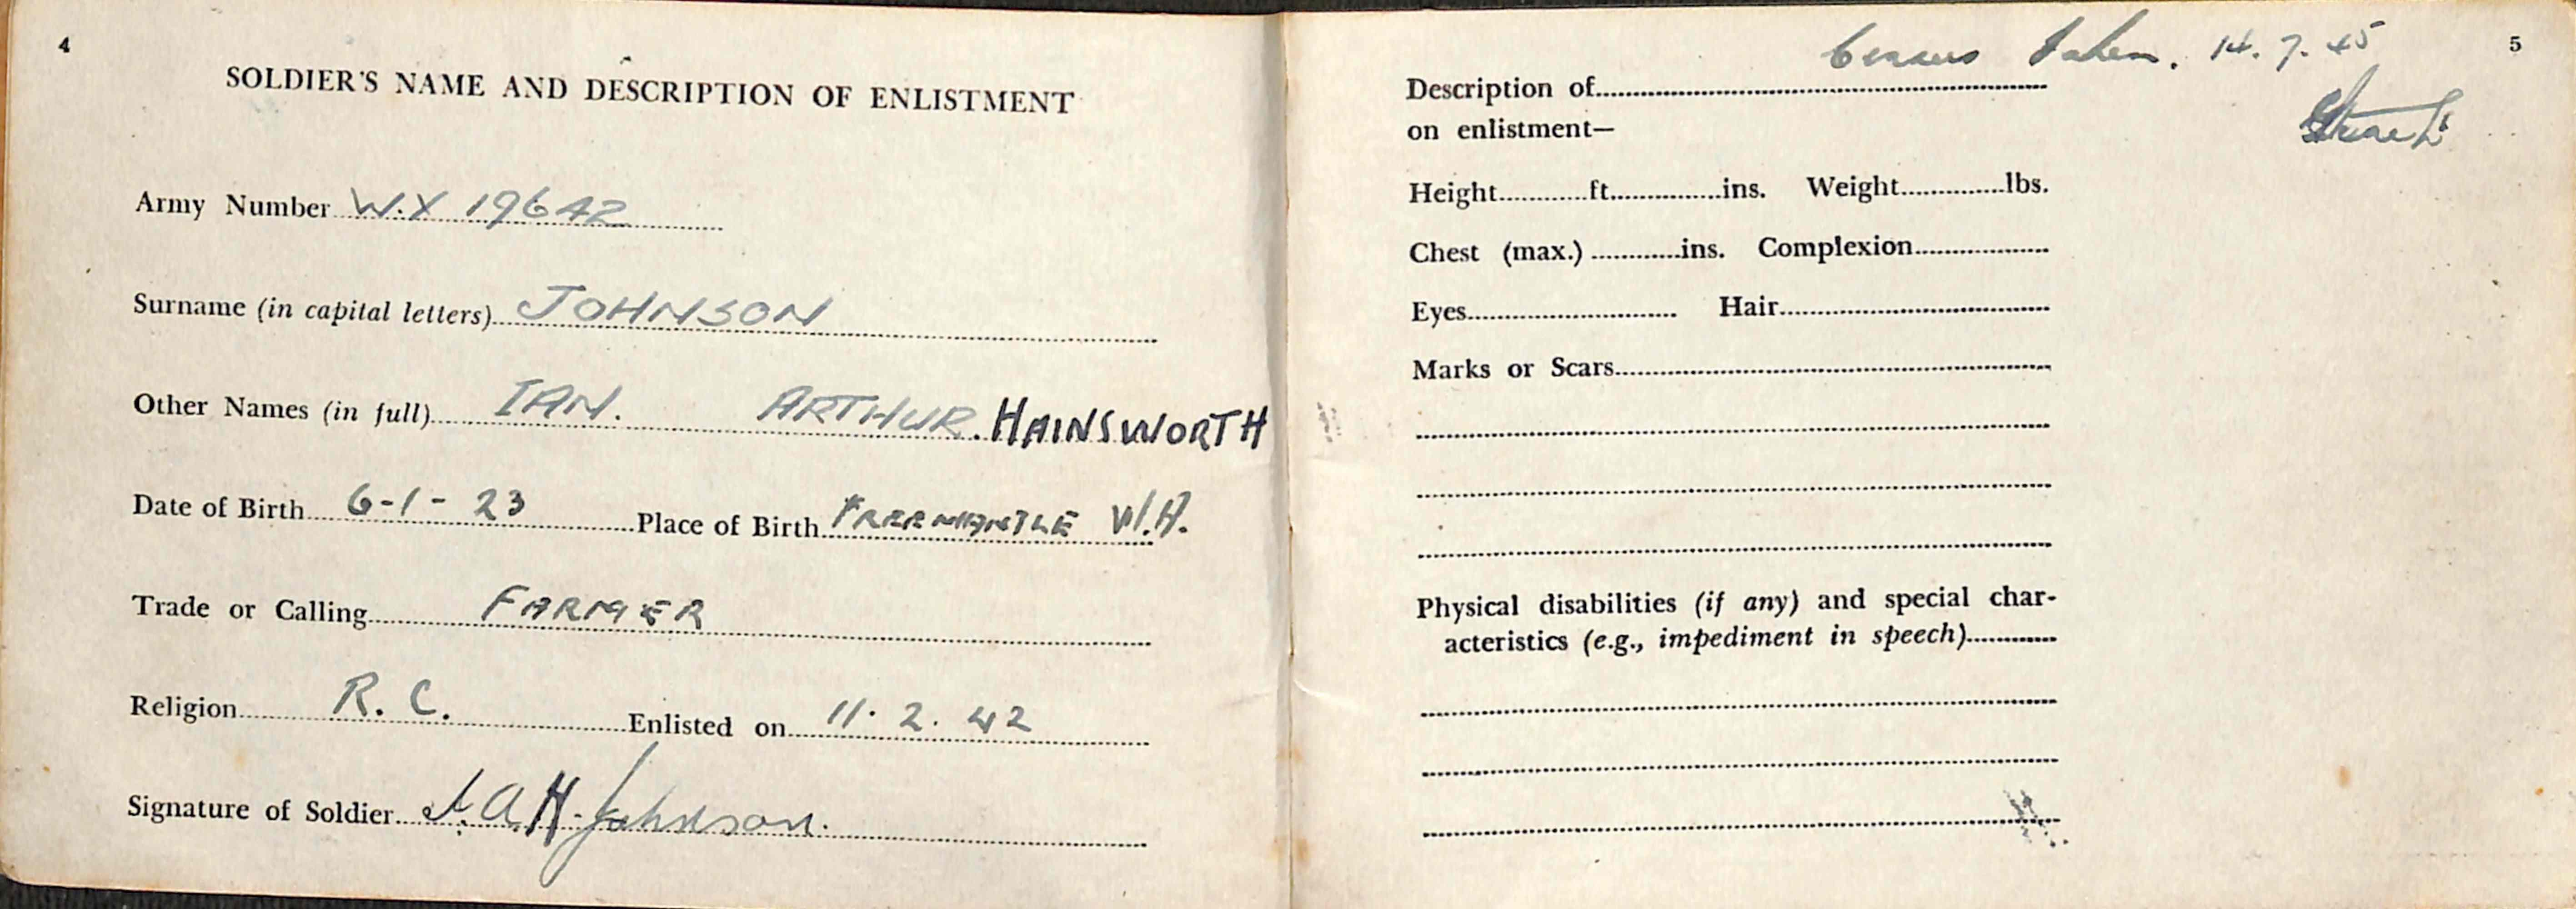 4
SOLDIER'S NAME AND DESCRIPTION OF ENLISTMENT
Army Number W.X 19642
Surname (in capital letters) JOHNSON
Other Names (in full) IAN. ARTHUR. HAINSWORTH
Date of Birth 6-1-23 Place of Birth FREEMANTLE W.A.
Trade or Calling FARMER
Religion R. C. Enlisted on 11. 2. 42
Signature of Soldier I. A. H. Johnson.
Census taken. 14. 7. 45
5
Description of
on enlistment—
Height ft. ins. Weight lbs.
Chest (max.) ins. Complexion
Eyes Hair
Marks or Scars
Physical disabilities (if any) and special char-
acteristics (e.g., impediment in speech)